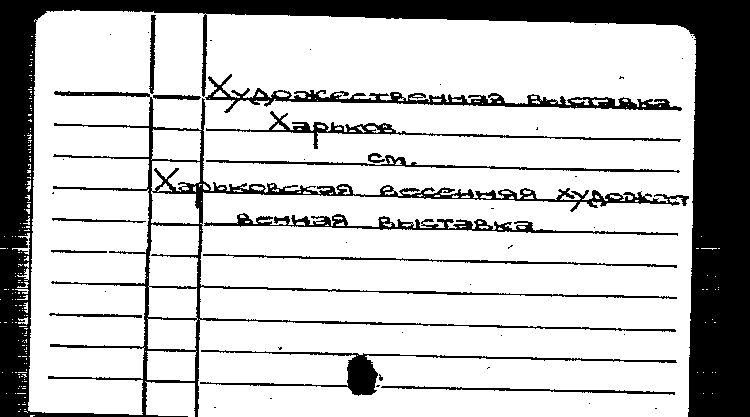 Художественная выставка.
Харьков.
см.
Харьковская весенняя художест
венная выставка.